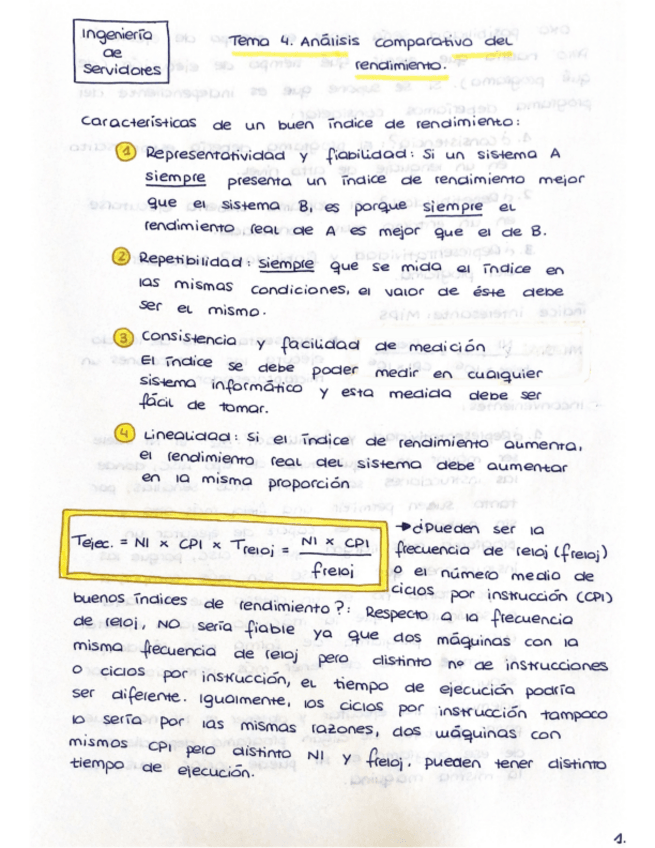 Ingeniería
de
Servidores
Tema 4. Análisis comparativo del
rendimiento.
Características de un buen índice de rendimiento:
1 Representatividad y fiabilidad: Si un sistema A
siempre presenta un índice de rendimiento mejor
que el sistema B, es porque siempre el
rendimiento real de A es mejor que el de B.
2 Repetibilidad: Siempre que se mida el índice en
las mismas condiciones, el valor de éste debe
ser el mismo.
3 Consistencia y facilidad de medición
El índice se debe poder medir en cualquier
sistema informático y esta medida debe ser
fácil de tomar.
4 Linealidad: Si el índice de rendimiento aumenta,
el rendimiento real del sistema debe aumentar
en la misma proporción
Tejec. = NI x CPI x Treloj = NI x CPI
freloj
→ ¿Pueden ser la
frecuencia de reloj (freloj)
o el número medio de
ciclos por instrucción (CPI)
buenos índices de rendimiento?: Respecto a la frecuencia
de reloj, NO sería fiable ya que dos máquinas con la
misma frecuencia de reloj pero distinto nº de instrucciones
o ciclos por instrucción, el tiempo de ejecución podría
ser diferente. Igualmente, los ciclos por instrucción tampoco
lo sería por las mismas razones, dos máquinas con
mismos CPI pero distinto NI y freloj. pueden tener distinto
tiempo de ejecución.
1.